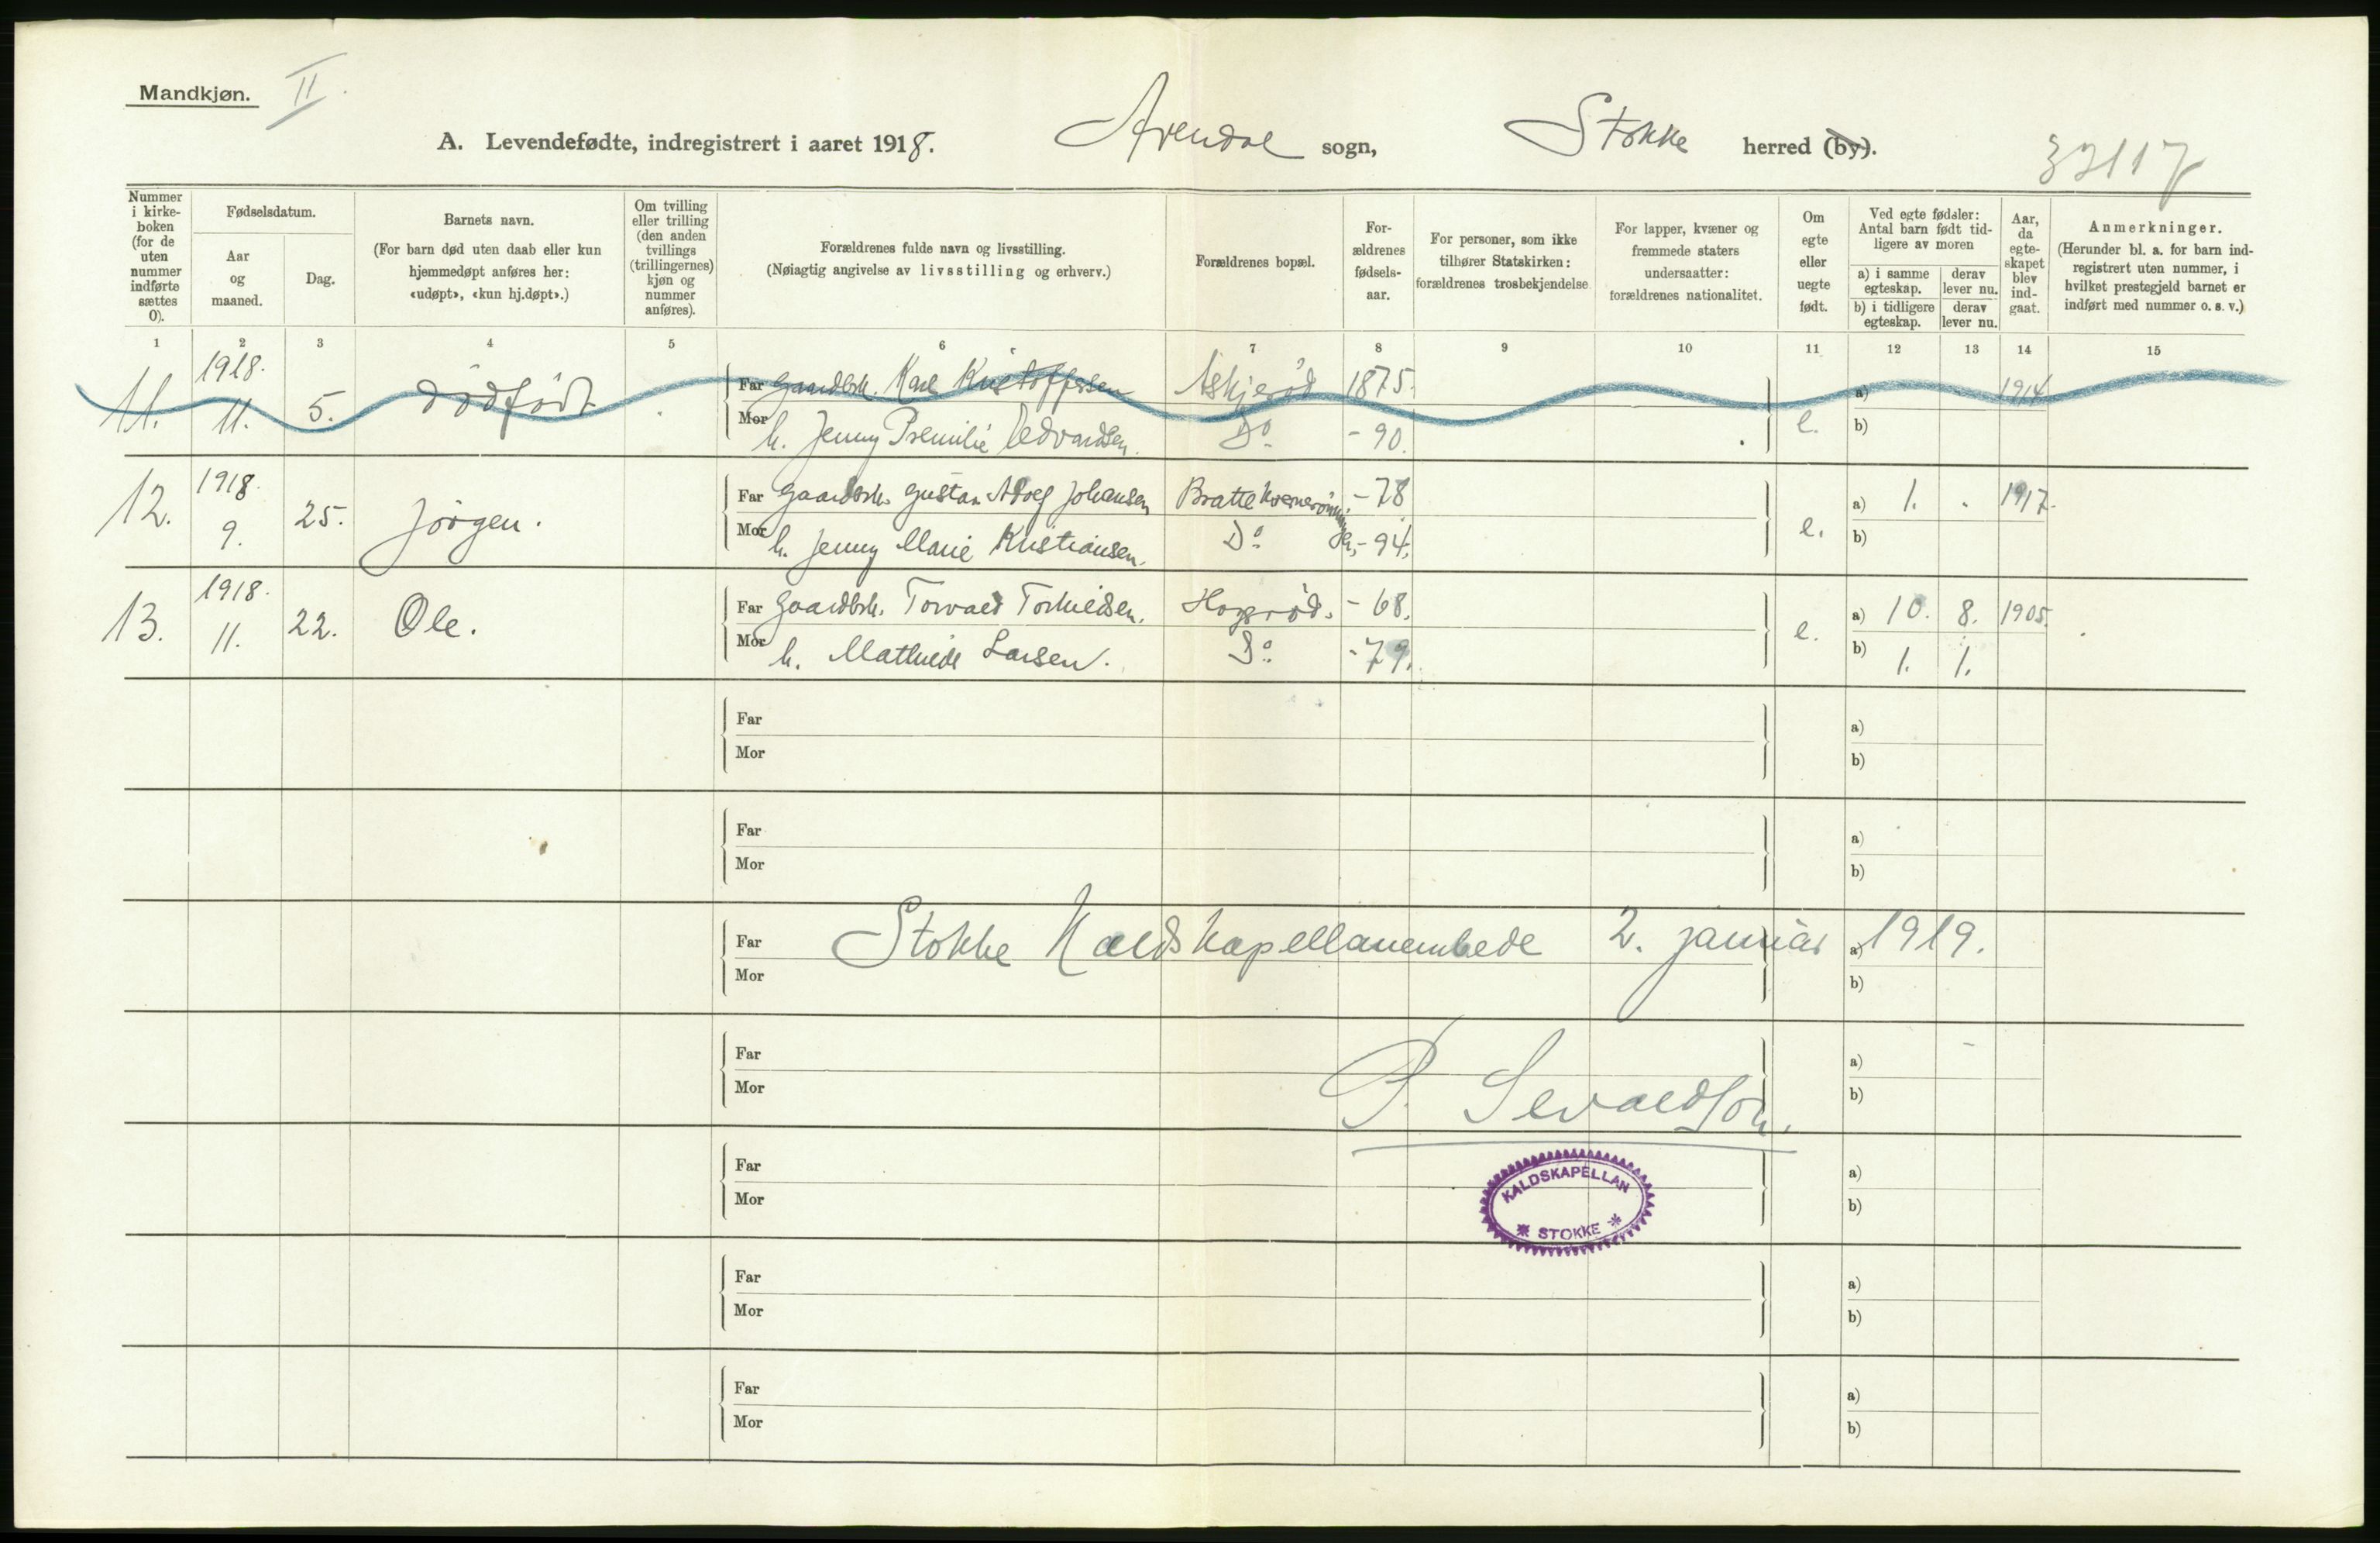 Mandkjøn. II.
A. Levendefødte, indregistrert i aaret 1918. Arendal sogn, Stokke herred (by).
Nummer i kirke-boken (for de uten nummer indførte sættes 0).
Fødselsdatum.
Aar og maaned.
Dag.
Barnets navn.
(For barn død uten daab eller kun hjemmedøpt anføres her: «udøpt», «kun hj.døpt».)
Om tvilling eller trilling (den anden tvillings (trillingernes) kjøn og nummer anføres).
Forældrenes fulde navn og livsstilling.
(Nøiagtig angivelse av livsstilling og erhverv.)
Forældrenes bopæl.
For-ældrenes fødsels-aar.
For personer, som ikke tilhører Statskirken: forældrenes trosbekjendelse
For lapper, kvæner og fremmede staters undersaatter: forældrenes nationalitet.
Om egte eller uegte født.
Ved egte fødsler: Antal barn født tid-ligere av moren
a) i samme egteskap.
derav lever nu.
b) i tidligere egteskap.
derav lever nu.
Aar, da egte-skapet blev ind-gaat.
Anmerkninger.
(Herunder bl. a. for barn ind-registrert uten nummer, i hvilket prestegjeld barnet er indført med nummer o. s. v.)
1 2 3 4 5 6 7 8 9 10 11 12 13 14 15
11. 1918. 11. 5. dødfødt Far Gaardbr. Karl Kristoffersen Askjerød 1875. e. a) 1914.
Mor h. Jenny Edvardsen. Do - 90. b)
12. 1918. 9. 25. Jörgen. Far Gaardbr. Gustav Adolf Johansen - 78 e. a) 1. . 1917.
Mor h. Jenny Marie Kristiansen. Do - 94. b)
13. 1918. 11. 22. Ole. Far Gaardbr. Torvald Torkildsen. - 68. e. a) 10. 8. 1905.
Mor h. Mathilde Larsen. Do - 79. b) 1. 1.
Far a)
Mor b)
Far a)
Mor b)
Far Stokke Kaldskapellanembede 2. januar 1919. a)
Mor b)
Far a)
Mor P. Sevaldson. b)
Far a)
Mor b)
KALDSKAPELLAN
* STOKKE *
Far a)
Mor b)
Far a)
Mor b)